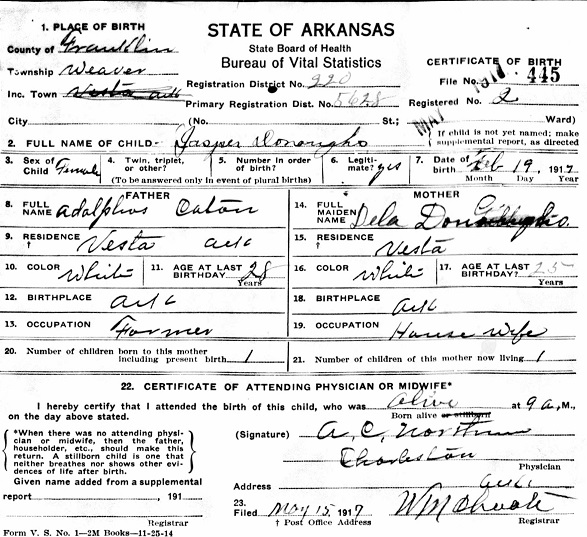 STATE OF ARKANSAS
State Board of Health
Bureau of Vital Statistics
1. PLACE OF BIRTH
County of Franklin
Township Weaver
Inc. Town Vesta ark
Registration District No. 220
Primary Registration Dist. No. 5628
CERTIFICATE OF BIRTH
File No. 445
Registered No. 2
MAY 1917
City (No. St.; Ward)
2. FULL NAME OF CHILD Jasper Donougho
If child is not yet named; make supplemental report, as directed
3. Sex of Child Female
4. Twin, triplet, or other?
5. Number in order of birth?
(To be answered only in event of plural births)
6. Legitimate? yes
7. Date of birth Feb 19, 1917
Month Day Year
FATHER
8. FULL NAME Adalphos Eaton
9. RESIDENCE † Vesta ark
10. COLOR White
11. AGE AT LAST BIRTHDAY 28 Years
12. BIRTHPLACE ark
13. OCCUPATION Farmer
MOTHER
14. FULL MAIDEN NAME Dela
15. RESIDENCE † Vesta
16. COLOR White
17. AGE AT LAST BIRTHDAY? 25 Years
18. BIRTHPLACE ark
19. OCCUPATION House wife
20. Number of children born to this mother including present birth 1
21. Number of children of this mother now living 1
22. CERTIFICATE OF ATTENDING PHYSICIAN OR MIDWIFE*
I hereby certify that I attended the birth of this child, who was alive at 9 a, M.,
Born alive or stillborn
on the day above stated.
*When there was no attending physician or midwife, then the father, householder, etc., should make this return. A stillborn child is one that neither breathes nor shows other evidences of life after birth.
(Signature) A. C. Northum
Charleston
Physician
Address ark
Given name added from a supplemental
report , 191
Registrar
23.
Filed May 15, 1917
† Post Office Address
Wm Choate
Registrar
Form V. S. No. 1—2M Books—11-25-14